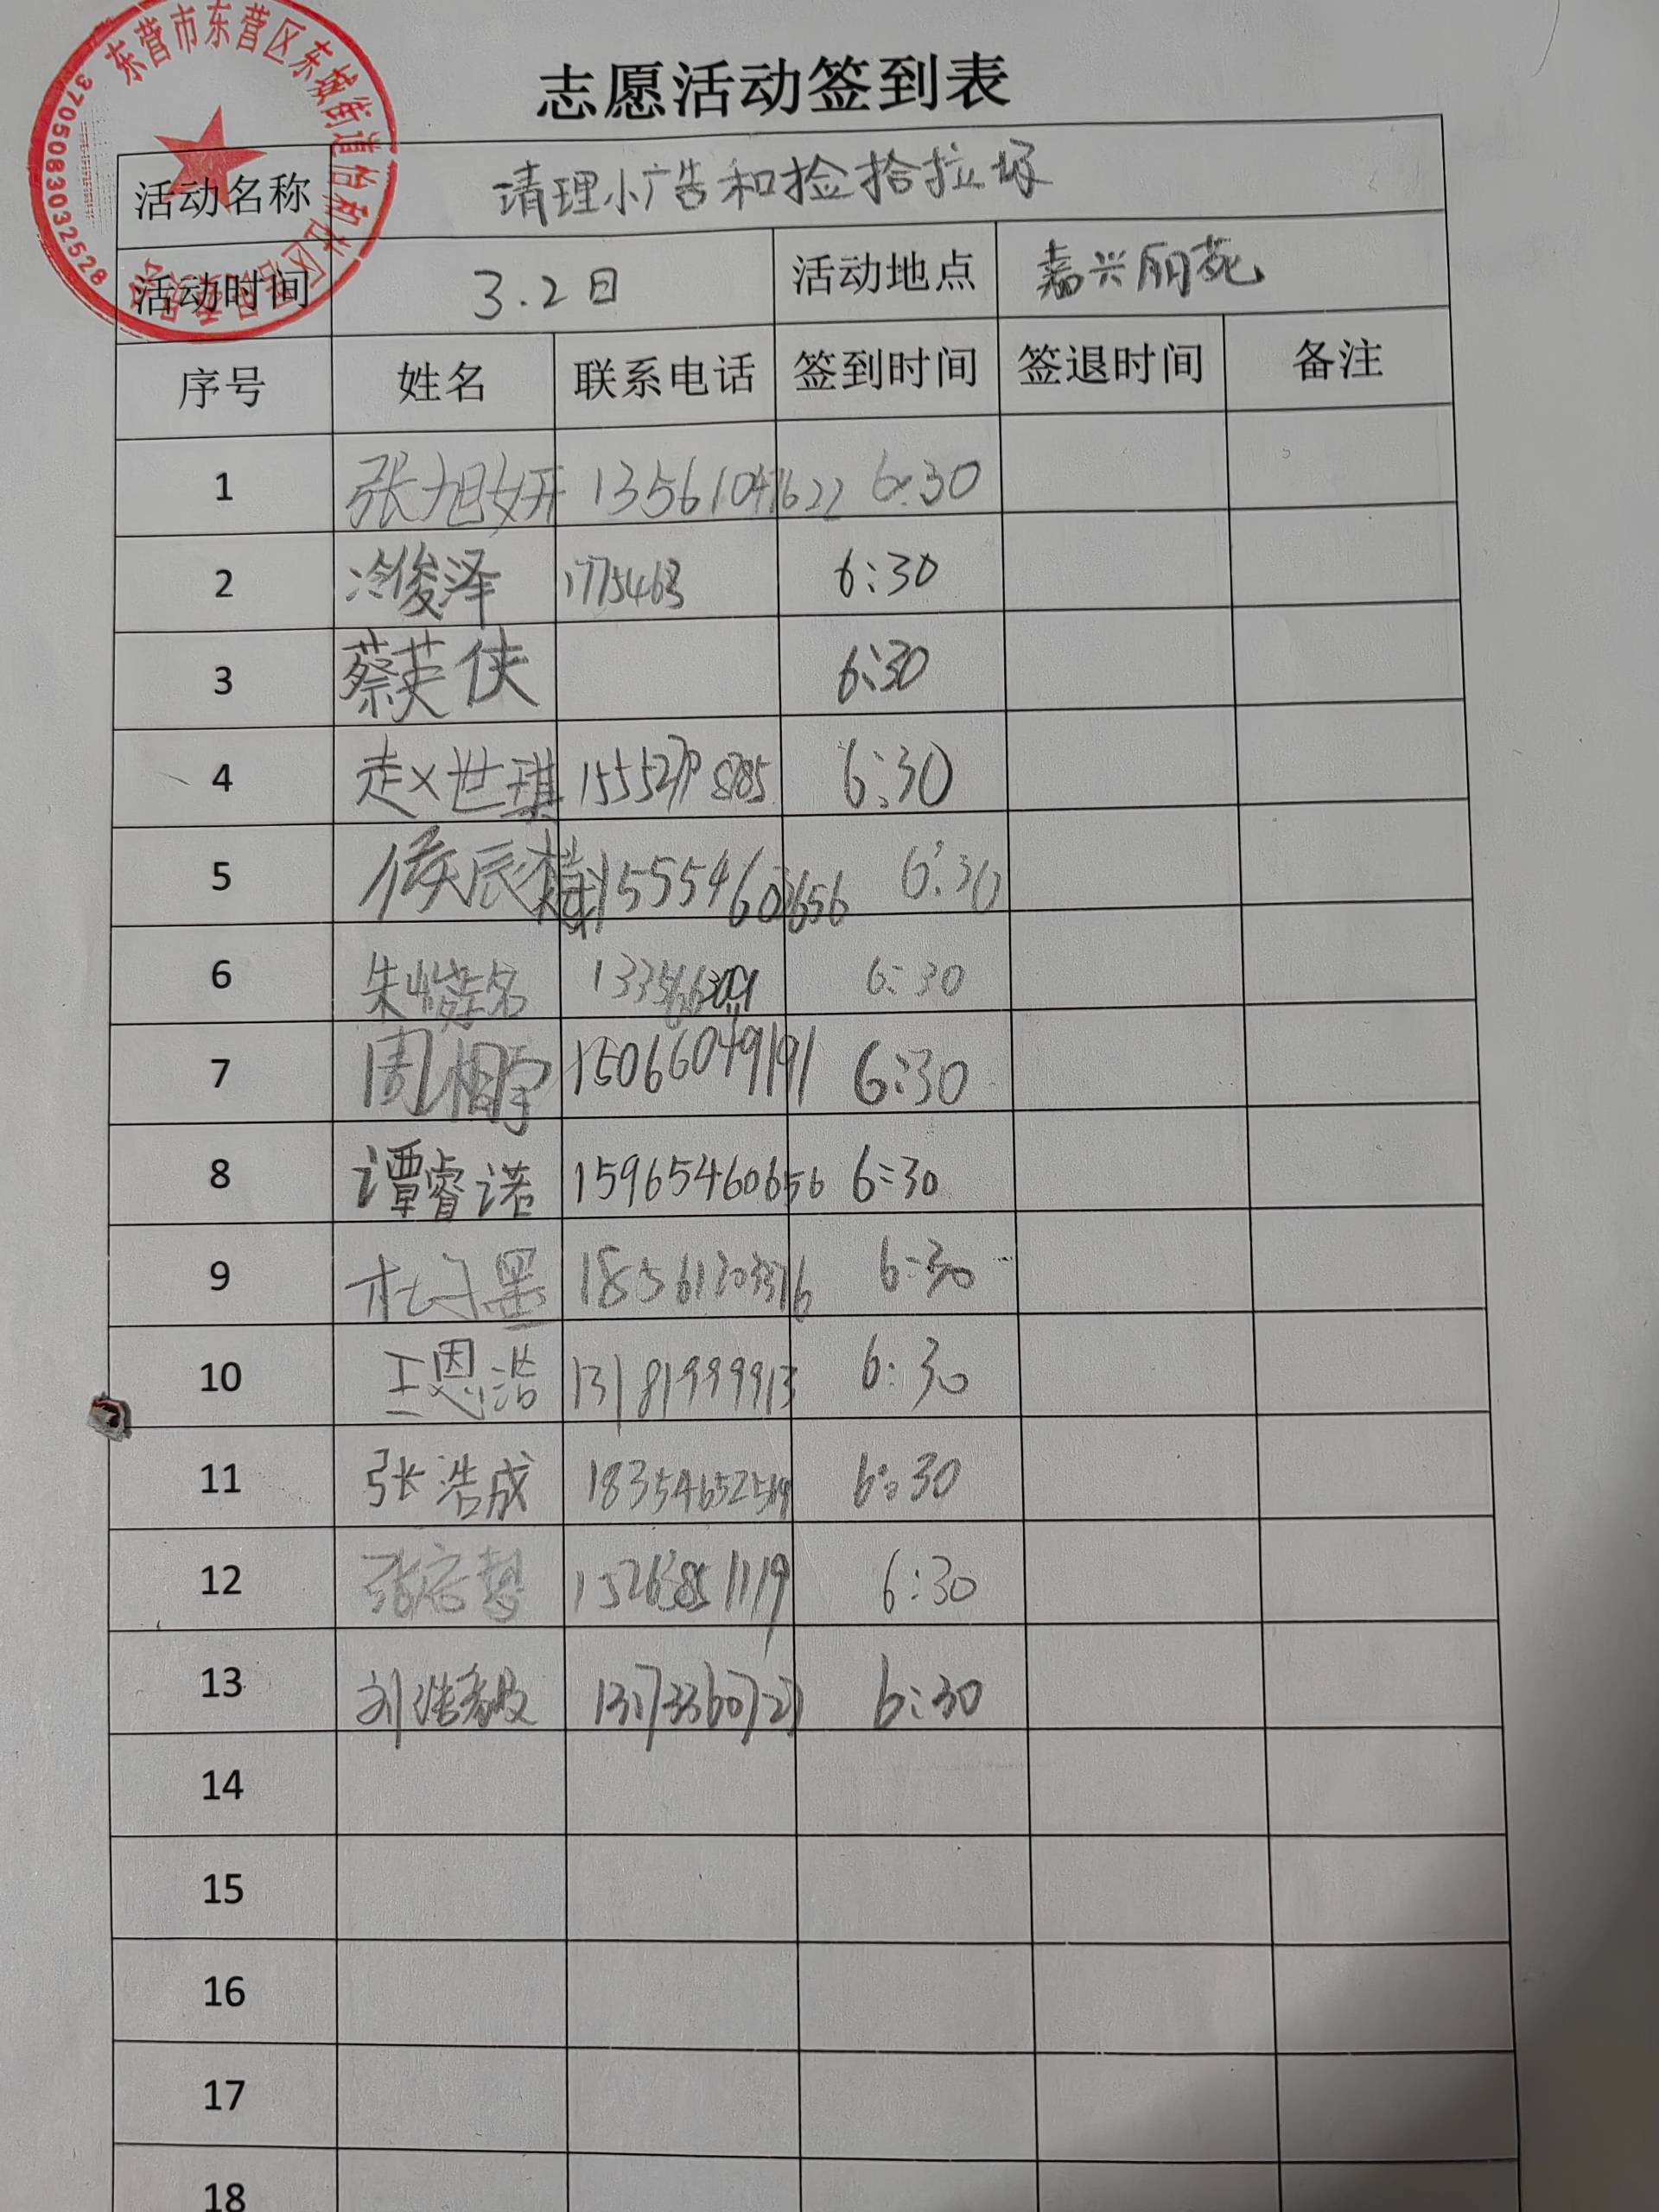 东营市东营区东城街道怡和社区居民委员会
3705083032528
志愿活动签到表
活动名称 清理小广告和捡拾垃圾
活动时间 3.2日 活动地点 嘉兴丽苑
序号 姓名 联系电话 签到时间 签退时间 备注
1 张旭妍 13561047622 6:30
2 冷俊泽 1775463 6:30
3 蔡英侠 6:30
4 赵世琪 6:30
5 侯辰 6:30
6 朱 名 6:30
7 周 宇 15066049191 6:30
8 谭睿诺 15965460656 6:30
9 杜子墨 6:30
10 王恩浩 13181999913 6:30
11 张浩成 6:30
12 张 6:30
13 刘浩 6:30
14
15
16
17
18